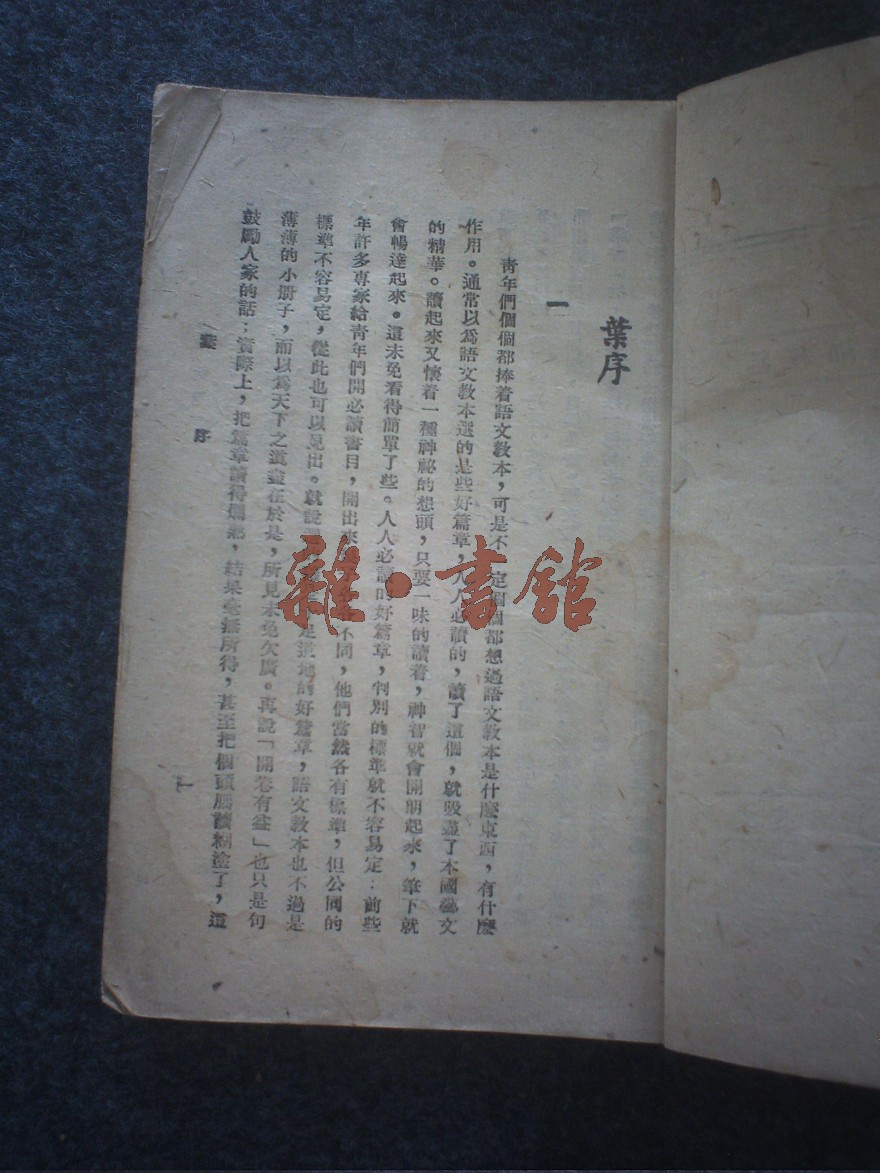 葉序
一
青年們個個都捧着語文教本，可是不定個個都想過語文教本是什麼東西，有什麼
作用。通常以爲語文教本選的是些好篇章，人人必讀的，讀了這個，就吸盡了本國藝文
的精華。讀起來又懷着一種神祕的想頭，只要一味的讀着，神智就會開朗起來，筆下就
會暢達起來。這未免看得簡單了些。人人必讀的好篇章，判別的標準就不容易定：前些
年許多專家給青年們開必讀書目，開出來不同，他們當然各有標準，但公同的
標準不容易定，從此也可以見出。就說是道地的好篇章，語文教本也不過是
薄薄的小册子，而以爲天下之道盡在於是，所見未免欠廣。再說「開卷有益」也只是句
鼓勵人家的話；實際上，把篇章讀得爛熟，結果毫無所得，甚至把個頭腦讀糊塗了，這
葉序
一
雜·書館